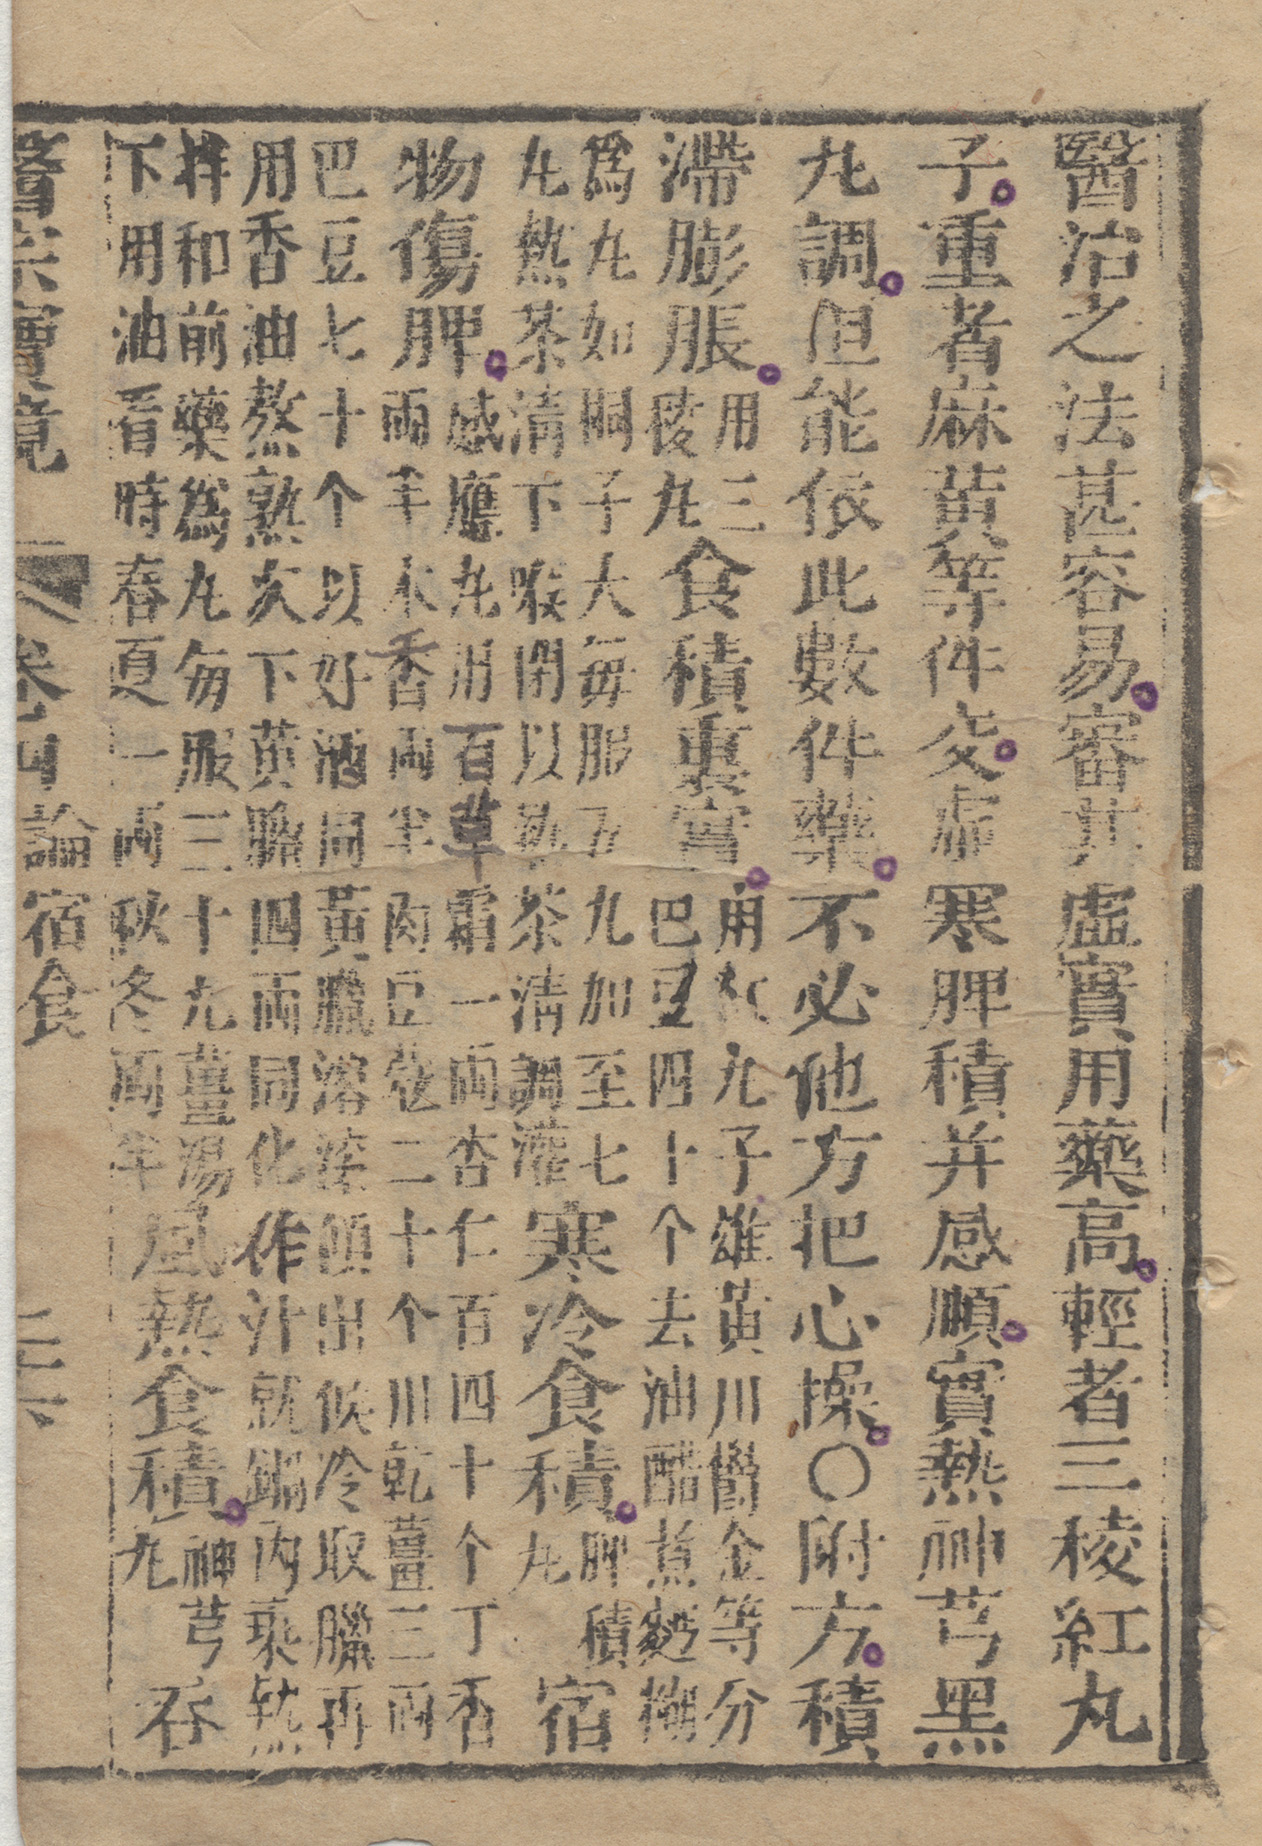 醫治之法甚容易審其虛實用藥高輕者三稜紅丸
子重者麻黃等件交虛寒脾積并感順實熱神芎黑
丸調但能依此數件藥不必他方把心操〇附方積
滯膨脹
用三
稜丸
食積裏實
用 九子雄黃川鬱金等分
巴豆四十个去油醋煮麪糊
為丸如桐子大每服五九加至七
丸熱茶清下喉閉以熱茶清調灌
寒冷食積
脾積
丸
宿
物傷脾
感應丸用百草霜一兩杏仁百四十个丁香
兩半木香兩半肉豆蔻二十个川乾薑三兩
巴豆七十个以好酒同黃臘溶滾傾出候冷取臘再
用香油熬熟次下黃臘四兩同化作汁就鍋內乘熱
拌和前藥為丸每服三十丸薑湯
下用油看時春夏一兩秋冬兩半
風熱食積
神芎
丸
吞
醫宗寶鏡 卷四 論宿食 三六